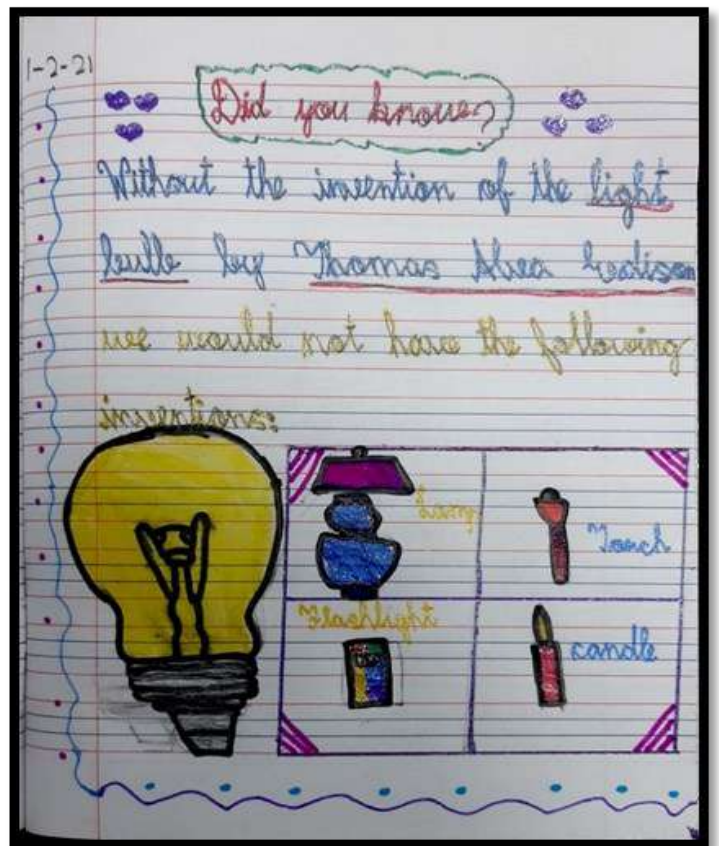 1-2-21
Did you know?
Without the invention of the light
bulb by Thomas Alva Eedison
we would not have the following
inventions:
Lamp
Torch
Flashlight
candle